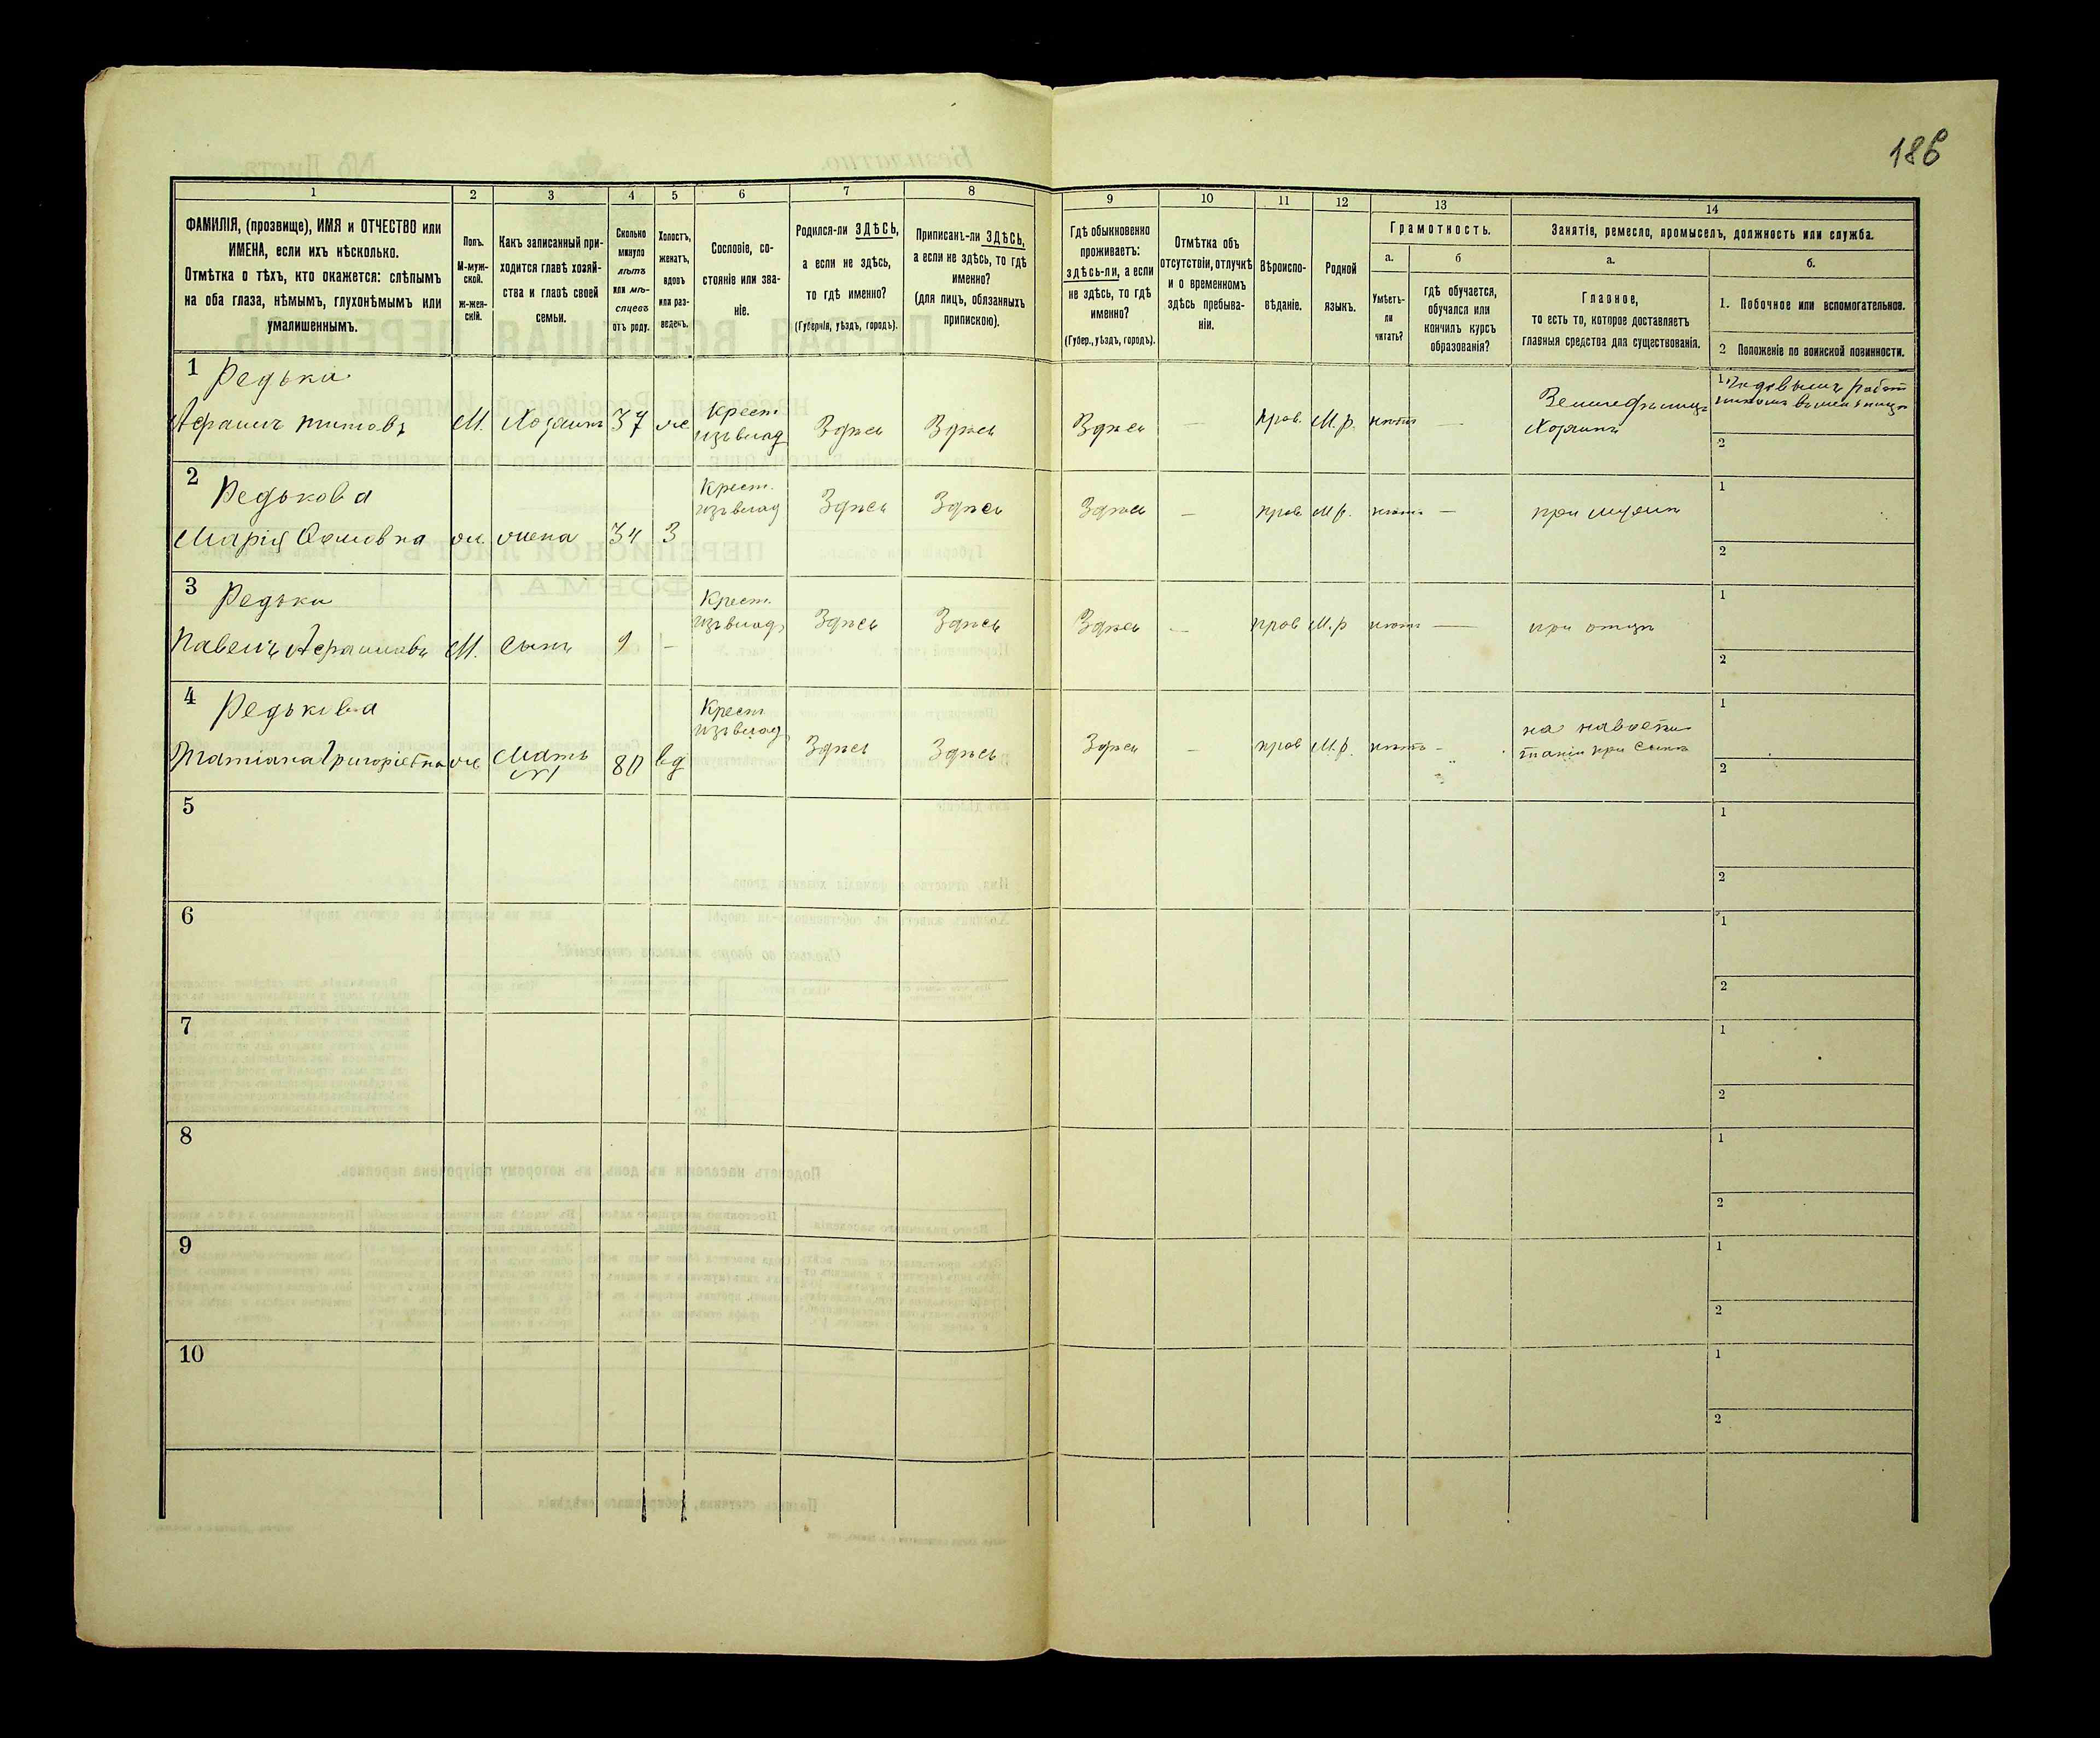 186
1 2 3 4 5 6 7 8 9 10 11 12 13 14
ФАМИЛІЯ, (прозвище), ИМЯ и ОТЧЕСТВО или
ИМЕНА, если ихъ нѣсколько.
Отмѣтка о тѣхъ, кто окажется: слѣпымъ
на оба глаза, нѣмымъ, глухонѣмымъ или
умалишеннымъ.
Полъ.
М-муж-
ской.
ж-жен-
скій.
Какъ записанный при-
ходится главѣ хозяй-
ства и главѣ своей
семьи.
Сколько
минуло
лѣтъ
или мѣ-
сяцевъ
отъ роду.
Холостъ,
женатъ,
вдовъ
или раз-
веденъ.
Сословіе, со-
стояніе или зва-
ніе.
Родился-ли ЗДѢСЬ,
а если не здѣсь,
то гдѣ именно?
(Губернія, уѣздъ, городъ).
Приписанъ-ли ЗДѢСЬ,
а если не здѣсь, то гдѣ
именно?
(для лицъ, обязанныхъ
припискою).
Гдѣ обыкновенно
проживаетъ:
здѣсь-ли, а если
не здѣсь, то гдѣ
именно?
(Губер., уѣздъ, городъ).
Отмѣтка объ
отсутствіи, отлучкѣ
и о временномъ
здѣсь пребыва-
ніи.
Вѣроиспо-
вѣданіе.
Родной
языкъ.
Грамотность.
а.
Умѣетъ-
ли
читать?
б
гдѣ обучается,
обучался или
кончилъ курсъ
образованія?
Занятіе, ремесло, промыселъ, должность или служба.
а.
Главное,
то есть то, которое доставляетъ
главныя средства для существованія.
б.
1. Побочное или вспомогательное.
2 Положеніе по воинской повинности.
1 Редька
Афанасъ Титовъ М. Хозяинъ 37 ж Крест. изъ влад Здѣсь Здѣсь Здѣсь — прав. М. р. нѣтъ — Земледѣлецъ
Хозяинъ
1
2
2 Редькова
Марія Ѳомовна ж жена 34 З Крест. изъ влад Здѣсь Здѣсь Здѣсь — прав. М. р. нѣтъ — при мужѣ
1
2
3 Редька
Павелъ Афанасовъ М. Сынъ 9 — Крест. изъ влад. Здѣсь Здѣсь Здѣсь — прав М. р нѣтъ — при отцѣ
1
2
4 Редькова
Татіана Григоріевна ж Мать №1 80 вд Крест. изъ влад. Здѣсь Здѣсь Здѣсь — прав М. р. нѣтъ — на
при Сынѣ
1
2
5
1
2
6
1
2
7
1
2
8
1
2
9
1
2
10
1
2